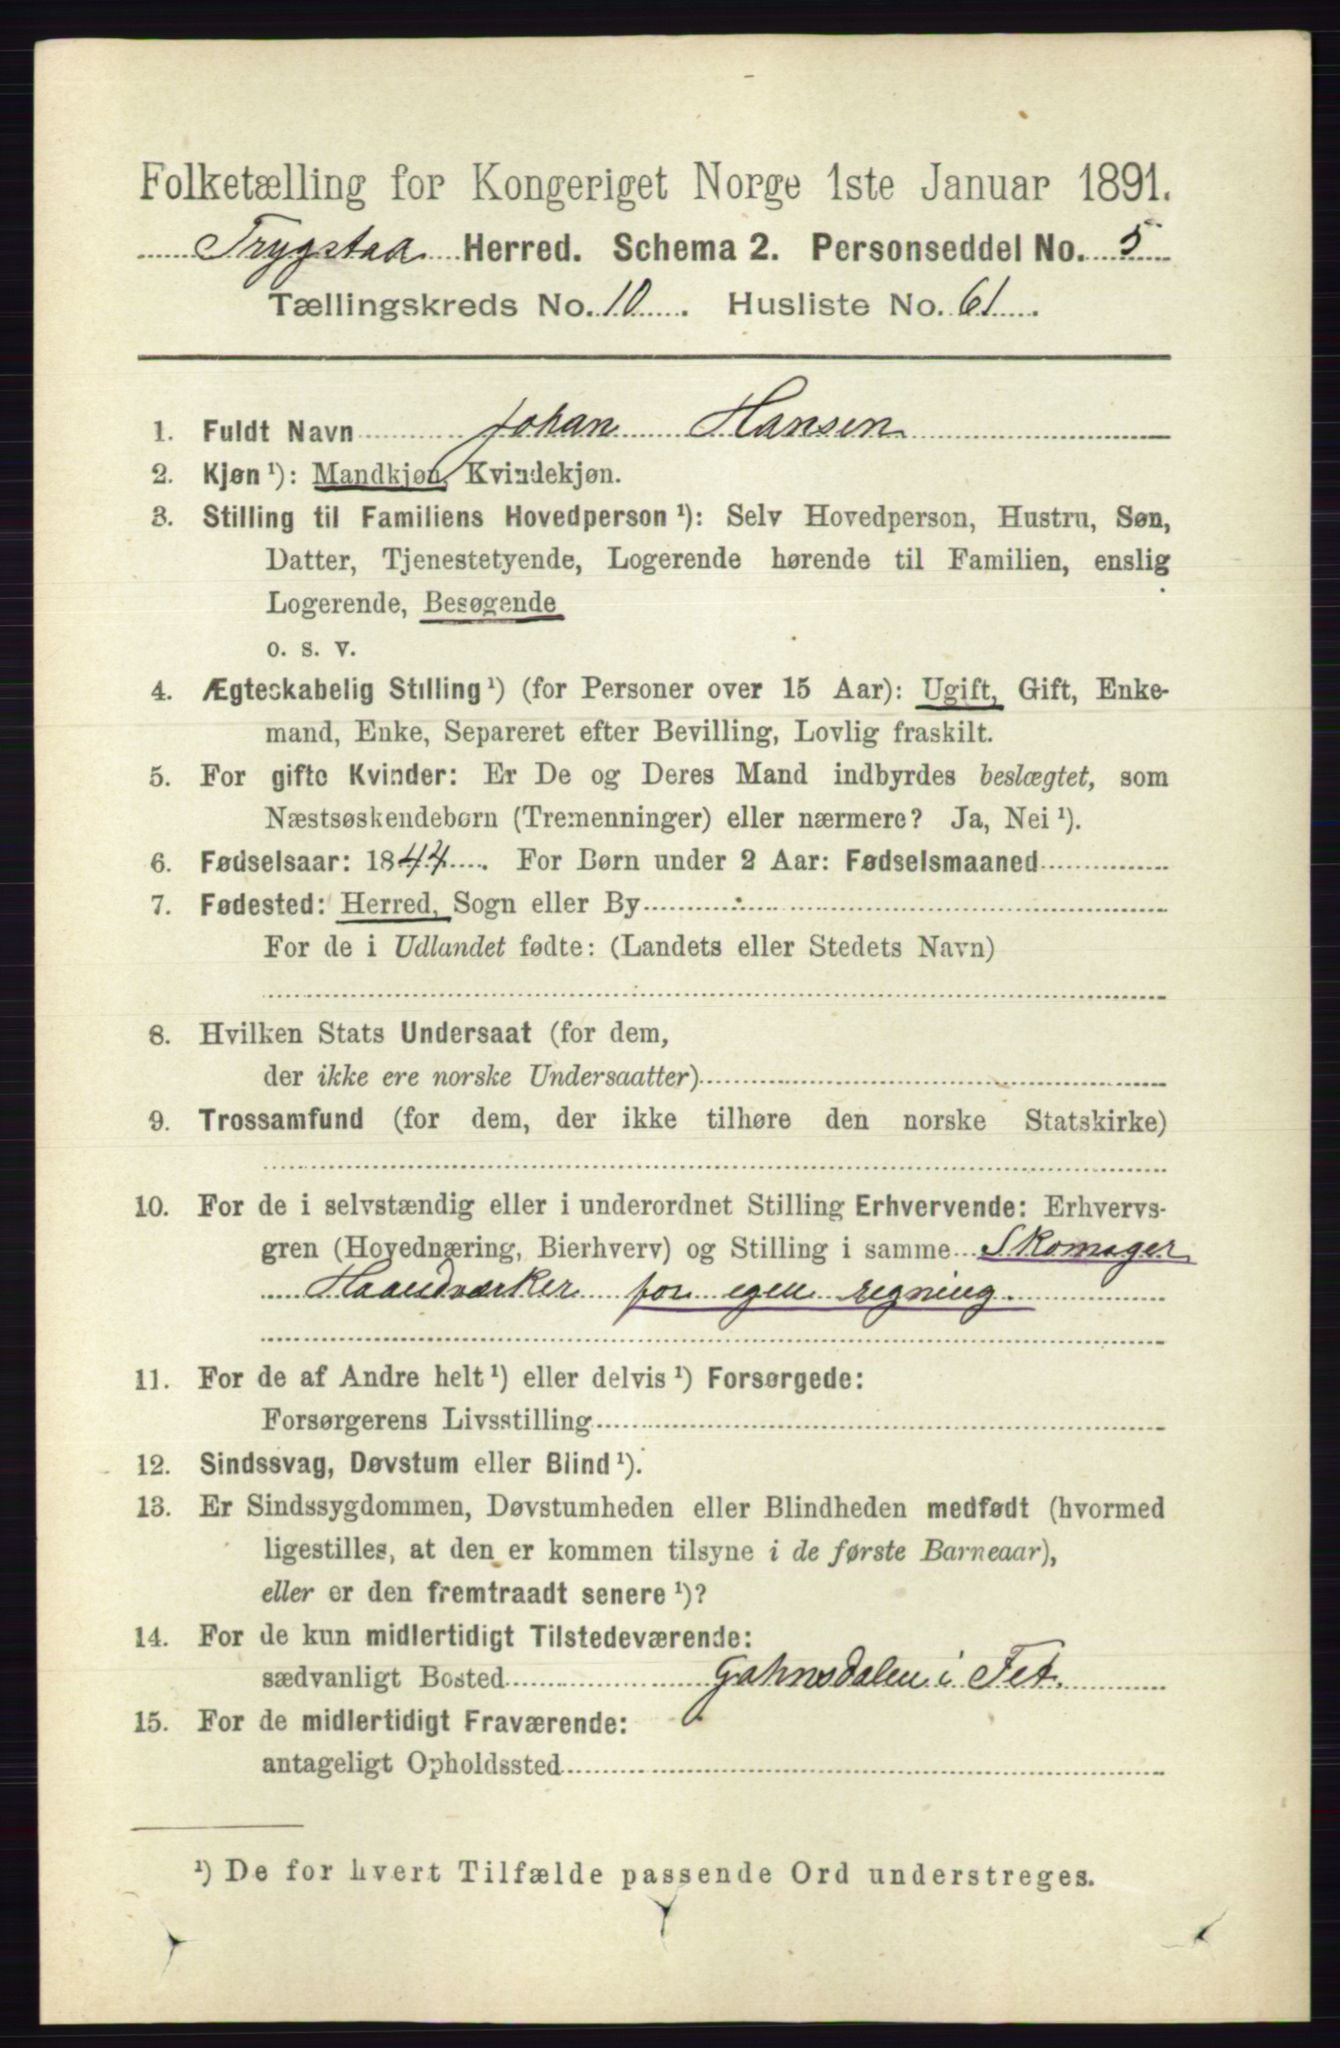 Folketælling for Kongeriget Norge 1ste Januar 1891.
Trygstad Herred. Schema 2. Personseddel No. 5
Tællingskreds No. 10. Husliste No. 61.
1. Fuldt Navn Johan Hansen
2. Kjøn ¹): Mandkjøn, Kvindekjøn.
3. Stilling til Familiens Hovedperson ¹): Selv Hovedperson, Hustru, Søn,
Datter, Tjenestetyende, Logerende hørende til Familien, enslig
Logerende, Besøgende
o. s. v.
4. Ægteskabelig Stilling ¹) (for Personer over 15 Aar): Ugift, Gift, Enke-
mand, Enke, Separeret efter Bevilling, Lovlig fraskilt.
5. For gifte Kvinder: Er De og Deres Mand indbyrdes beslægtet, som
Næstsøskendebørn (Tremenninger) eller nærmere? Ja, Nei ¹).
6. Fødselsaar: 1844. For Børn under 2 Aar: Fødselsmaaned
7. Fødested: Herred, Sogn eller By
For de i Udlandet fødte: (Landets eller Stedets Navn)
8. Hvilken Stats Undersaat (for dem,
der ikke ere norske Undersaatter)
9. Trossamfund (for dem, der ikke tilhøre den norske Statskirke)
10. For de i selvstændig eller i underordnet Stilling Erhvervende: Erhvervs-
gren (Hovednæring, Bierhverv) og Stilling i samme Skomager
Haandværker for egen regning.
11. For de af Andre helt ¹) eller delvis ¹) Forsørgede:
Forsørgerens Livsstilling
12. Sindssvag, Døvstum eller Blind ¹).
13. Er Sindssygdommen, Døvstumheden eller Blindheden medfødt (hvormed
ligestilles, at den er kommen tilsyne i de første Barneaar),
eller er den fremtraadt senere ¹)?
14. For de kun midlertidigt Tilstedeværende:
sædvanligt Bosted Gahnsdalen i Fet.
15. For de midlertidigt Fraværende:
antageligt Opholdssted
¹) De for hvert Tilfælde passende Ord understreges.